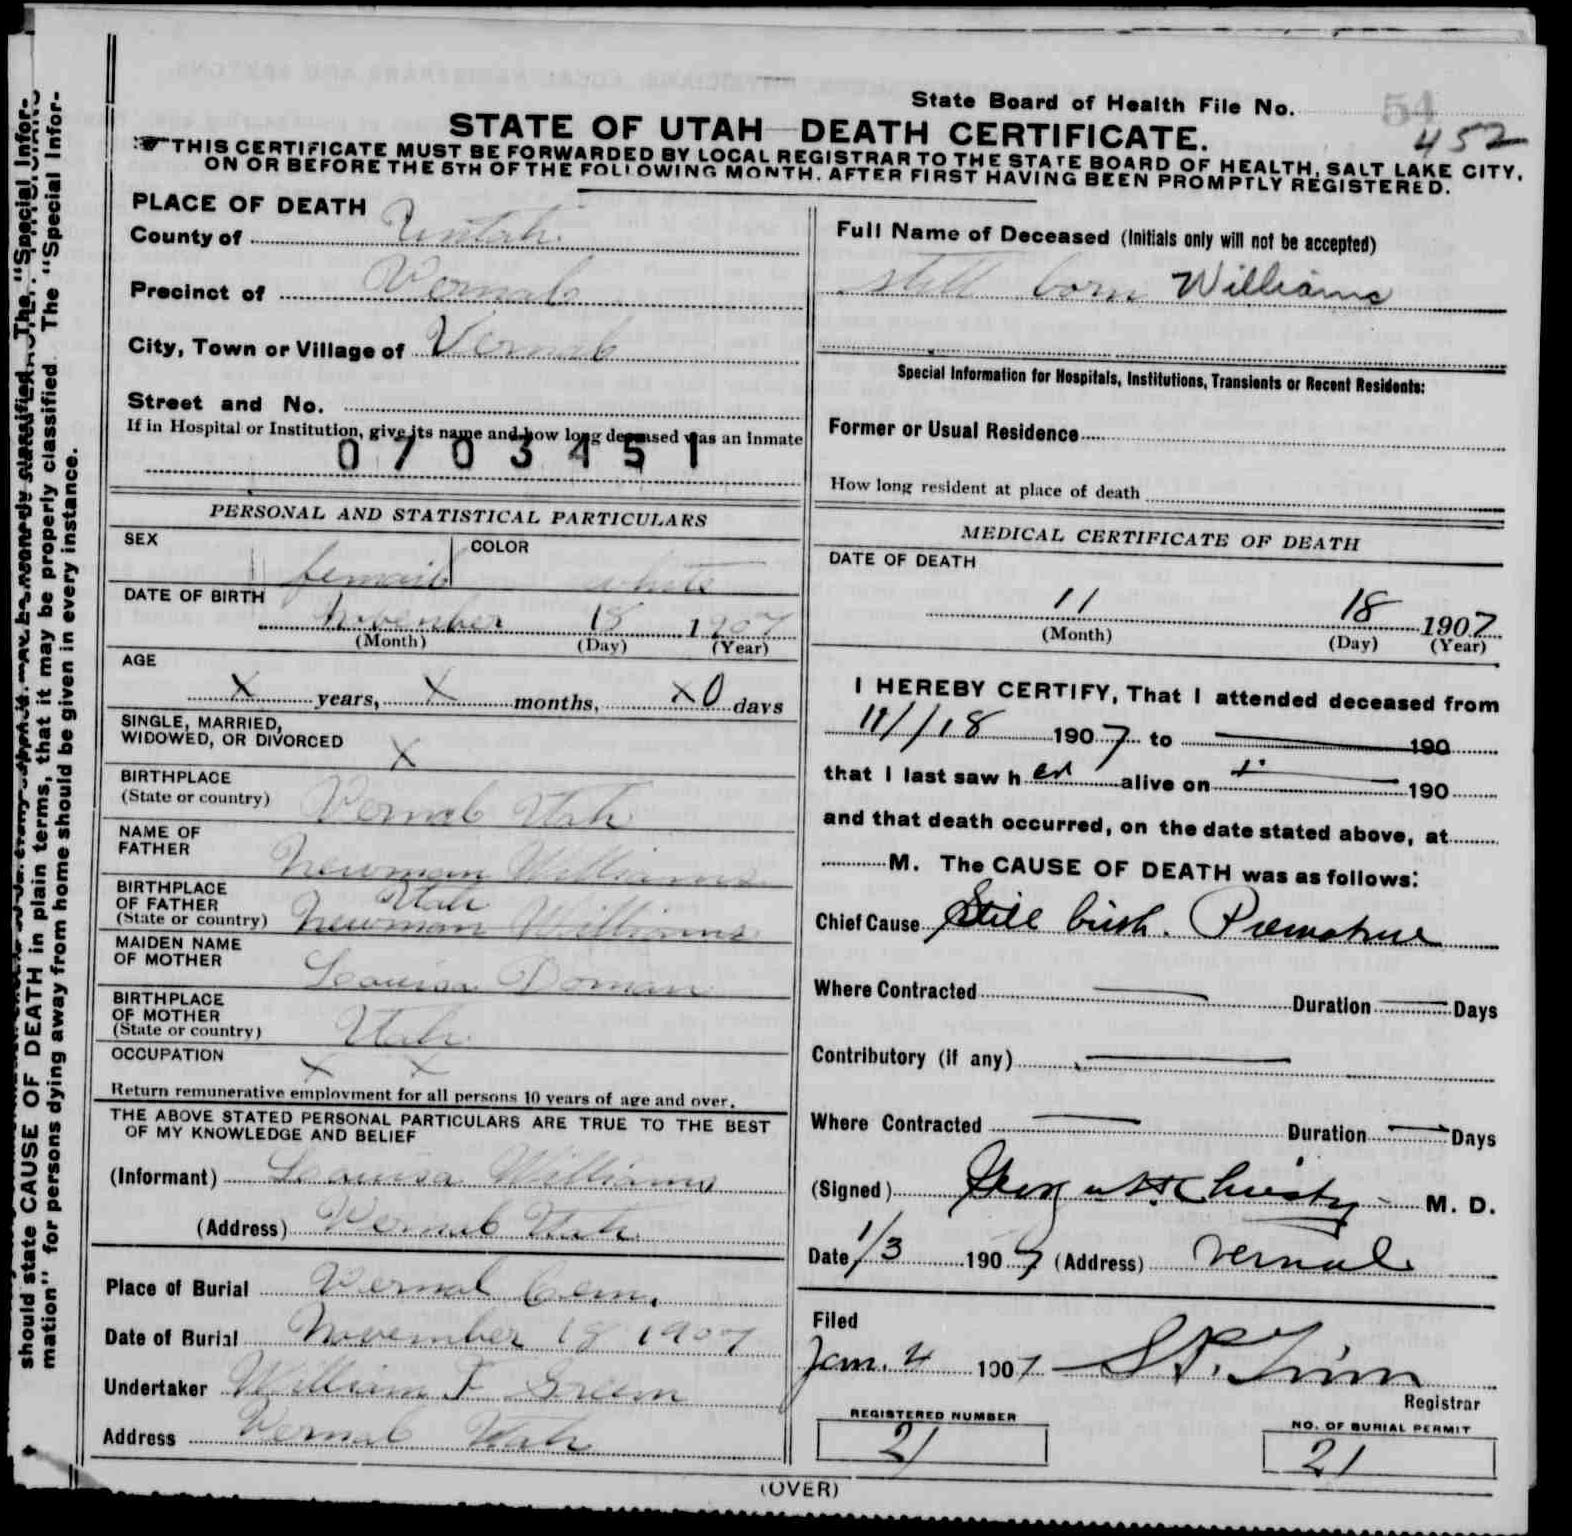 State Board of Health File No. 54
452
STATE OF UTAH—DEATH CERTIFICATE.
THIS CERTIFICATE MUST BE FORWARDED BY LOCAL REGISTRAR TO THE STATE BOARD OF HEALTH, SALT LAKE CITY,
ON OR BEFORE THE 5TH OF THE FOLLOWING MONTH, AFTER FIRST HAVING BEEN PROMPTLY REGISTERED.
PLACE OF DEATH
County of Uintah
Precinct of Vernal
City, Town or Village of Vernal
Street and No.
If in Hospital or Institution, give its name and how long deceased was an inmate
0703451
Full Name of Deceased (Initials only will not be accepted)
still born Williams
Special Information for Hospitals, Institutions, Transients or Recent Residents:
Former or Usual Residence
How long resident at place of death
PERSONAL AND STATISTICAL PARTICULARS
SEX femail COLOR white
DATE OF BIRTH
November 18 1907
(Month) (Day) (Year)
AGE
X years, X months, X 0 days
SINGLE, MARRIED,
WIDOWED, OR DIVORCED X
BIRTHPLACE
(State or country) Vernal Utah
NAME OF
FATHER Newman Williams
BIRTHPLACE
OF FATHER Utah
(State or country) Newman Williams
MAIDEN NAME
OF MOTHER Louisa Doman
BIRTHPLACE
OF MOTHER
(State or country) Utah
OCCUPATION X X
Return remunerative employment for all persons 10 years of age and over.
THE ABOVE STATED PERSONAL PARTICULARS ARE TRUE TO THE BEST
OF MY KNOWLEDGE AND BELIEF
(Informant) Louisa Williams
(Address) Vernal Utah
Place of Burial Vernal Cem.
Date of Burial November 18 1907
Undertaker William F Green
Address Vernal Utah
MEDICAL CERTIFICATE OF DEATH
DATE OF DEATH
11 18 1907
(Month) (Day) (Year)
I HEREBY CERTIFY, That I attended deceased from
11/18 1907 to 190
that I last saw h er alive on 190
and that death occurred, on the date stated above, at
M. The CAUSE OF DEATH was as follows:
Chief Cause Still birth. Premature
Where Contracted Duration Days
Contributory (if any)
Where Contracted Duration Days
(Signed) Christy M. D.
Date 1/3 190 (Address) Vernal
Filed
Jan. 4 1907
Registrar
REGISTERED NUMBER
21
NO. OF BURIAL PERMIT
21
(OVER)
should state CAUSE OF DEATH in plain terms, that it may be properly classified. The "Special Infor-
mation" for persons dying away from home should be given in every instance.